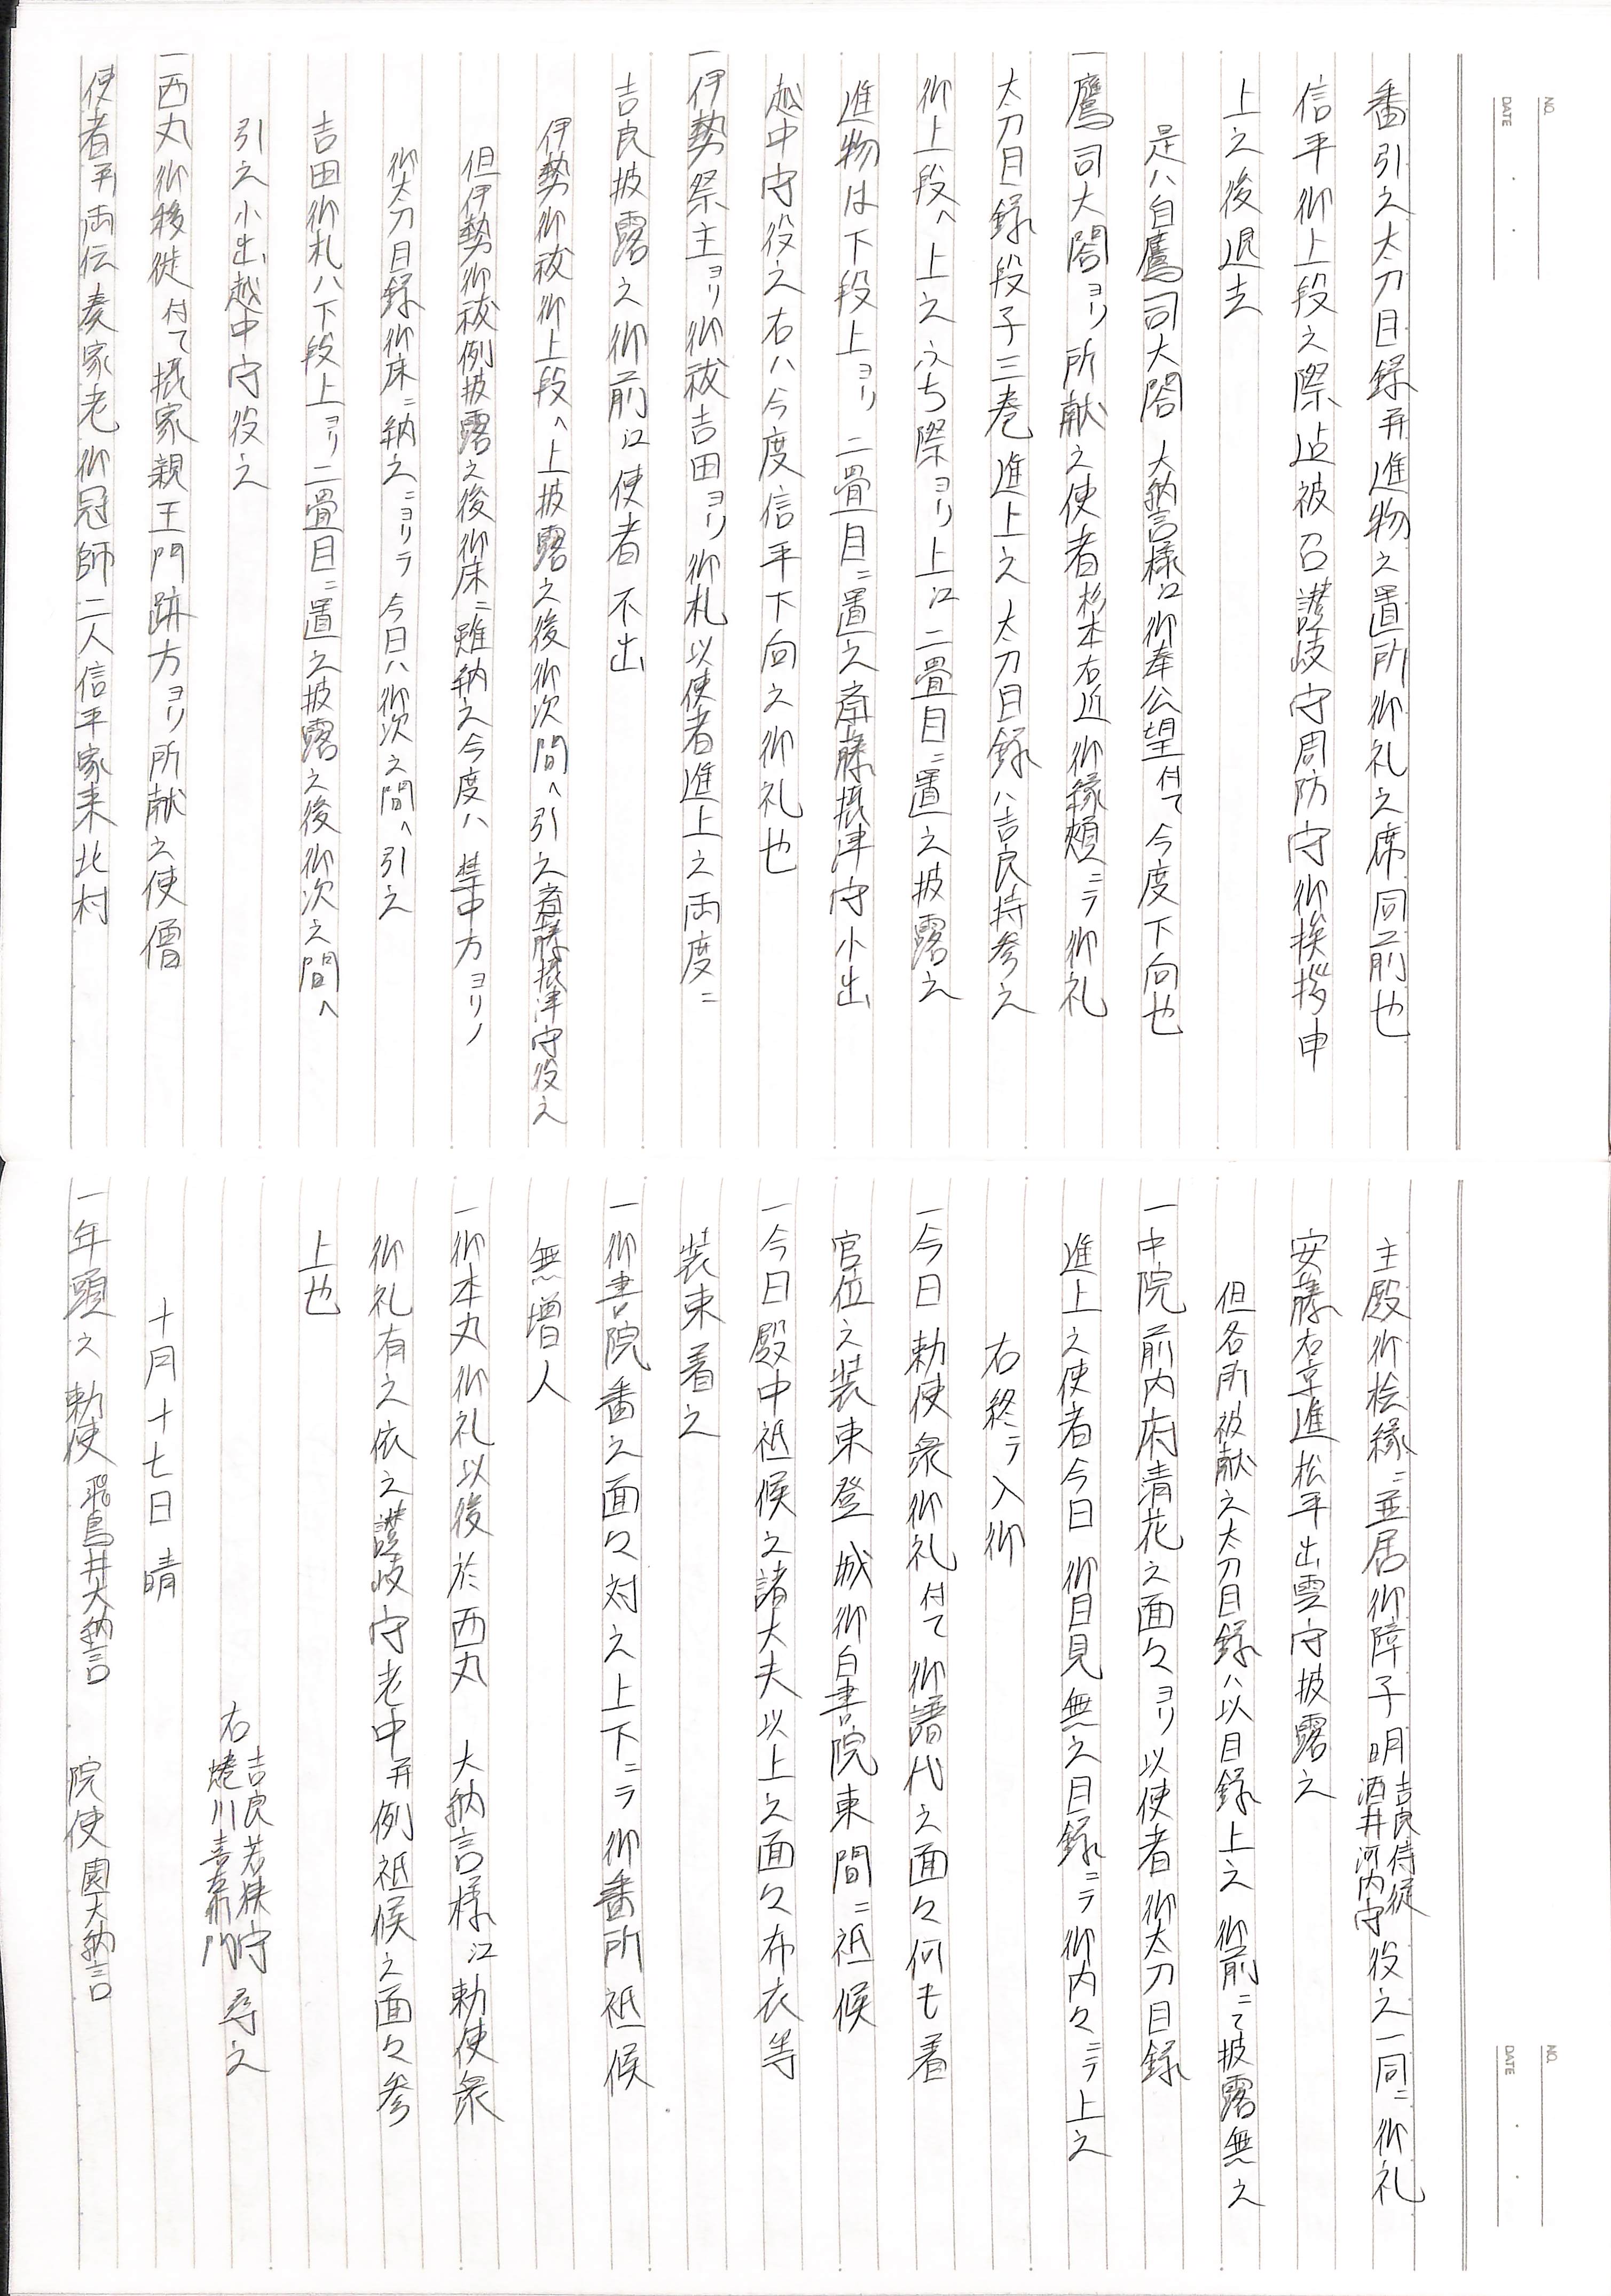 NO.
DATE
番引之太刀目録并進物之置所御礼之席同前也
信平御上段之際迄被召讃岐守周防守御挨拶申
上之後退去
是ハ自鷹司大閤 大納言様江御奉公望付て今度下向也
一鷹司大閤ヨリ所献之使者杉本右近御縁頬ニテ御礼
太刀目録段子三巻進上之太刀目録ハ吉良持参之
御上段へ上之ふち際ヨリ上江二畳目ニ置之披露之
進物は下段上ヨリ二畳目ニ置之斎藤摂津守小出
越中守役之右ハ今度信平下向之御礼也
一伊勢祭主ヨリ御祓吉田ヨリ御札以使者進上之両度ニ
吉良披露之御前江使者不出
伊勢御祓御上段へ上披露之後御次間へ引之斎藤摂津守役之
但伊勢御祓例披露之後御床ニ雖納之今度ハ禁中方ヨリノ
御太刀目録御床ニ納之ニヨリテ今日ハ御次之間へ引之
吉田御札ハ下段上ヨリ二畳目ニ置之披露之後御次之間へ
引之小出越中守役之
一西丸御移徙付て摂家親王門跡方ヨリ所献之使僧
使者并両伝奏家老御冠師二人信平家来北村
NO.
DATE
主殿御桧縁ニ並居御障子明吉良侍従酒井河内守役之一同ニ御礼
安藤右京進松平出雲守披露之
但各所被献之太刀目録ハ以目録上之御前ニて披露無之
一中院前内府清花之面々ヨリ以使者御太刀目録
進上之使者今日御目見無之目録ニテ御内々ニテ上之
右終テ入御
一今日勅使衆御礼付て御譜代之面々何も着
官位之装束登城御白書院東間ニ祗候
一今日殿中祗候之諸大夫以上之面々布衣等
装束着之
一御書院番之面々対之上下ニテ御番所祗候
無増人
一御本丸御礼以後於西丸 大納言様江勅使衆
御礼有之依之讃岐守老中并例祗候之面々参
上也
右吉良若狭守蜷川喜左衛門尋之
十月十七日 晴
一年頭之勅使飛鳥井大納言 院使園大納言